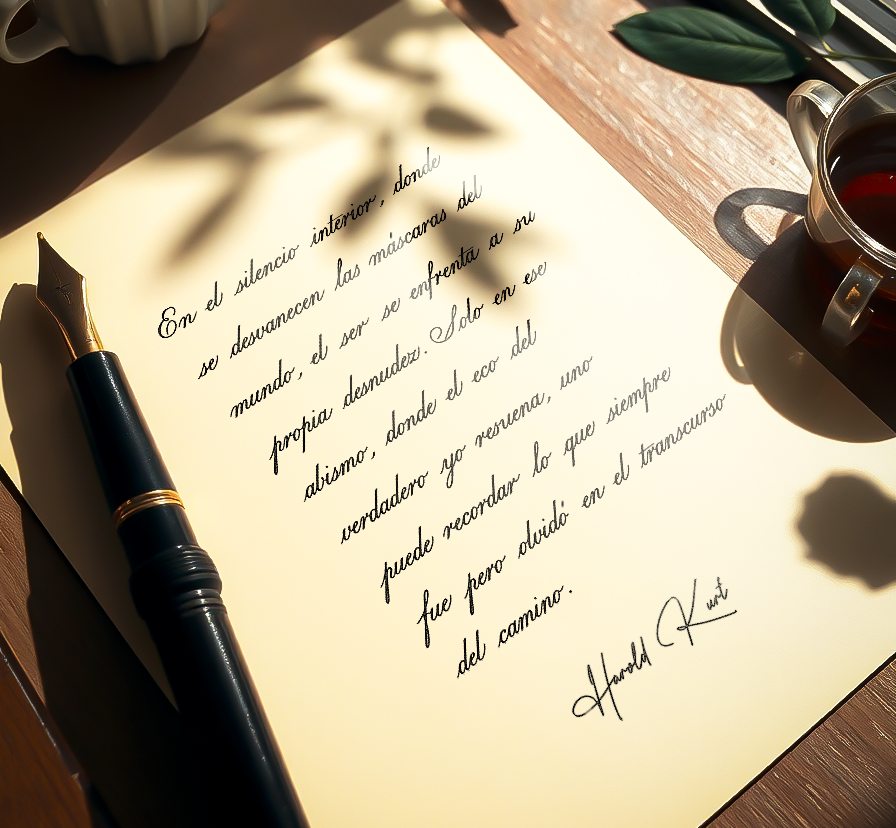 En el silencio interior, donde
se desvanecen las máscaras del
mundo, el ser se enfrenta a su
propia desnudez. Solo en ese
abismo, donde el eco del
verdadero yo resuena, uno
puede recordar lo que siempre
fue pero olvidó en el transcurso
del camino.
Harold Kurt